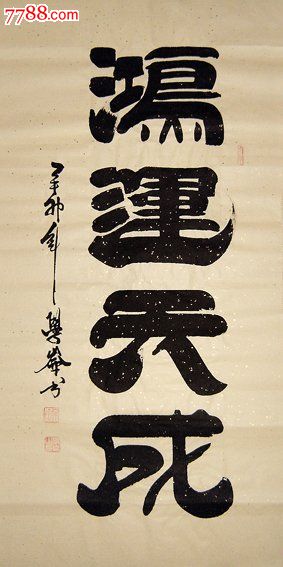 7788.com
鴻運天成
辛卯年學峯书